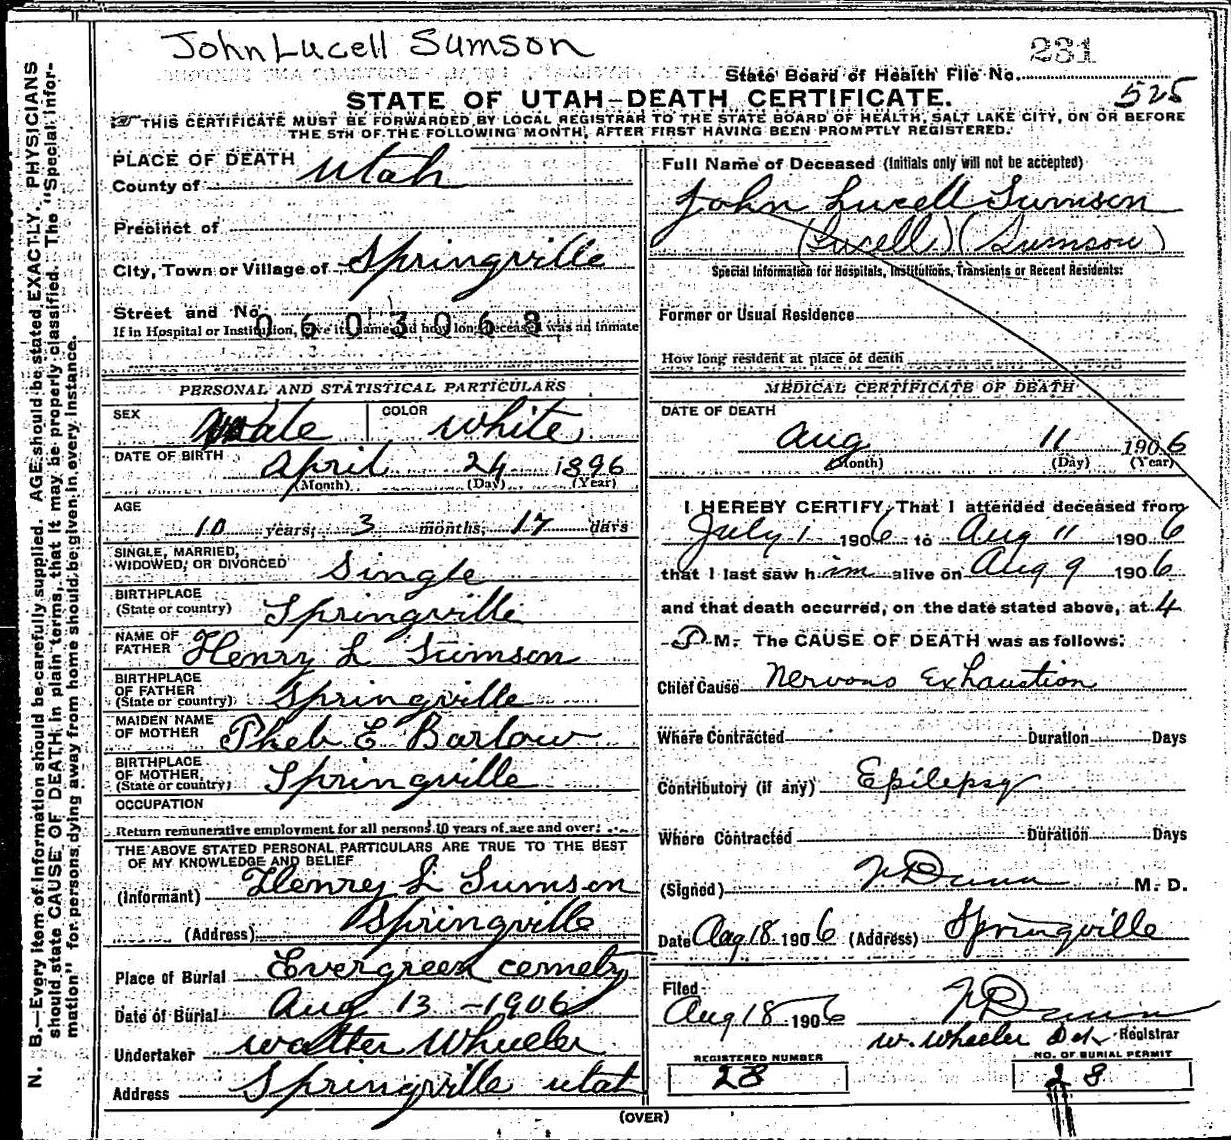 John Lucell Sumson
231
State Board of Health File No.
525
STATE OF UTAH—DEATH CERTIFICATE.
THIS CERTIFICATE MUST BE FORWARDED BY LOCAL REGISTRAR TO THE STATE BOARD OF HEALTH, SALT LAKE CITY, ON OR BEFORE
THE 5TH OF THE FOLLOWING MONTH, AFTER FIRST HAVING BEEN PROMPTLY REGISTERED.
N. B.—Every item of Information should be carefully supplied. AGE should be stated EXACTLY. PHYSICIANS
should state CAUSE OF DEATH in plain terms, that it may be properly classified. The "Special Infor-
mation" for persons dying away from home should be given in every instance.
PLACE OF DEATH
County of Utah
Precinct of
City, Town or Village of Springville
Street and No.
0603068
If in Hospital or Institution, give its name and how long deceased was an inmate
PERSONAL AND STATISTICAL PARTICULARS
SEX Male COLOR White
DATE OF BIRTH April 24 1896
(Month) (Day) (Year)
AGE
10 years, 3 months, 17 days
SINGLE, MARRIED,
WIDOWED, OR DIVORCED Single
BIRTHPLACE
(State or country) Springville
NAME OF
FATHER Henry L Sumson
BIRTHPLACE
OF FATHER
(State or country) Springville
MAIDEN NAME
OF MOTHER Pheb E Barlow
BIRTHPLACE
OF MOTHER,
(State or country) Springville
OCCUPATION
Return remunerative employment for all persons 10 years of age and over:
THE ABOVE STATED PERSONAL PARTICULARS ARE TRUE TO THE BEST
OF MY KNOWLEDGE AND BELIEF
(Informant) Henry L Sumson
(Address) Springville
Place of Burial Evergreen cemety
Date of Burial Aug 13 - 1906
Undertaker Walter Wheeler
Address Springville utah
Full Name of Deceased (Initials only will not be accepted)
John Lucell Sumson
(Lucell) (Sumson)
Special Information for Hospitals, Institutions, Transients or Recent Residents:
Former or Usual Residence
How long resident at place of death
MEDICAL CERTIFICATE OF DEATH
DATE OF DEATH
Aug 11 1906
(Month) (Day) (Year)
I HEREBY CERTIFY, That I attended deceased from
July 1 1906 to Aug 11 1906
that I last saw him alive on Aug 9 1906
and that death occurred, on the date stated above, at 4
P M. The CAUSE OF DEATH was as follows:
Chief Cause Nervous Exhaustion
Where Contracted Duration Days
Contributory (if any) Epilepsy
Where Contracted Duration Days
(Signed) Dunn M. D.
Date Aug 18 1906 (Address) Springville
Filed
Aug 18 1906 Dunn
W. Wheeler Registrar
REGISTERED NUMBER
28
NO. OF BURIAL PERMIT
28
(OVER)